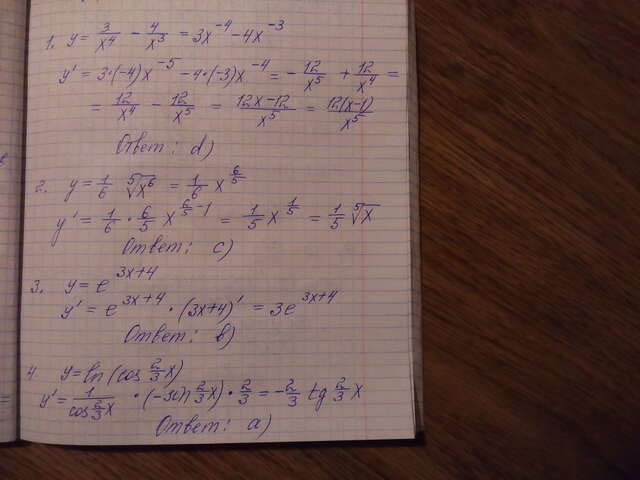 1. y = 3/x⁴ - 4/x³ = 3x⁻⁴ - 4x⁻³
y' = 3·(-4)x⁻⁵ - 4·(-3)x⁻⁴ = - 12/x⁵ + 12/x⁴ =
= 12/x⁴ - 12/x⁵ = (12x-12)/x⁵ = 12(x-1)/x⁵
Ответ: d)
2. y = 1/6 ⁵√x⁶ = 1/6 x^(6/5)
y' = 1/6 · 6/5 x^(6/5 - 1) = 1/5 x^(1/5) = 1/5 ⁵√x
Ответ: c)
3. y = e^(3x+4)
y' = e^(3x+4) · (3x+4)' = 3e^(3x+4)
Ответ: b)
4. y = ln(cos 2/3 x)
y' = 1/(cos 2/3 x) · (-sin 2/3 x) · 2/3 = - 2/3 tg 2/3 x
Ответ: a)